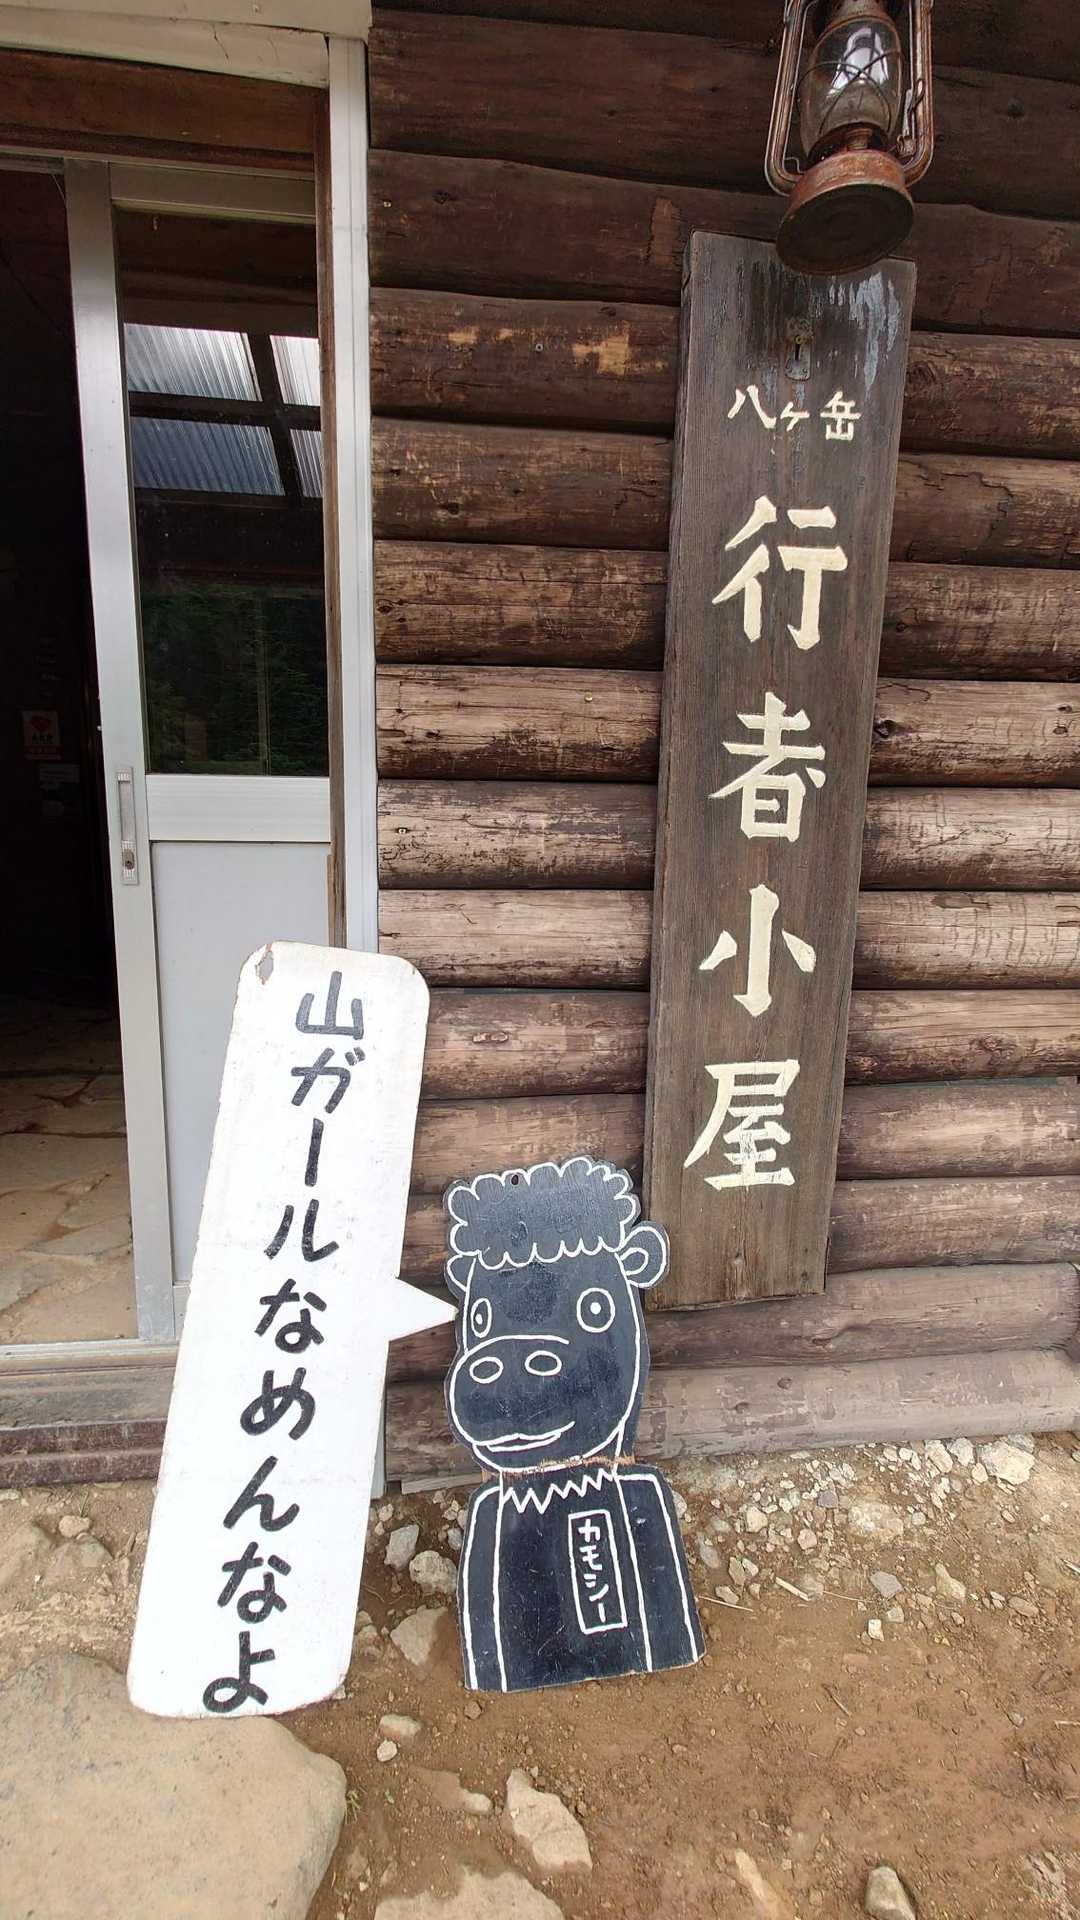 八ヶ岳
行者小屋
山ガールなめんなよ
カモシー